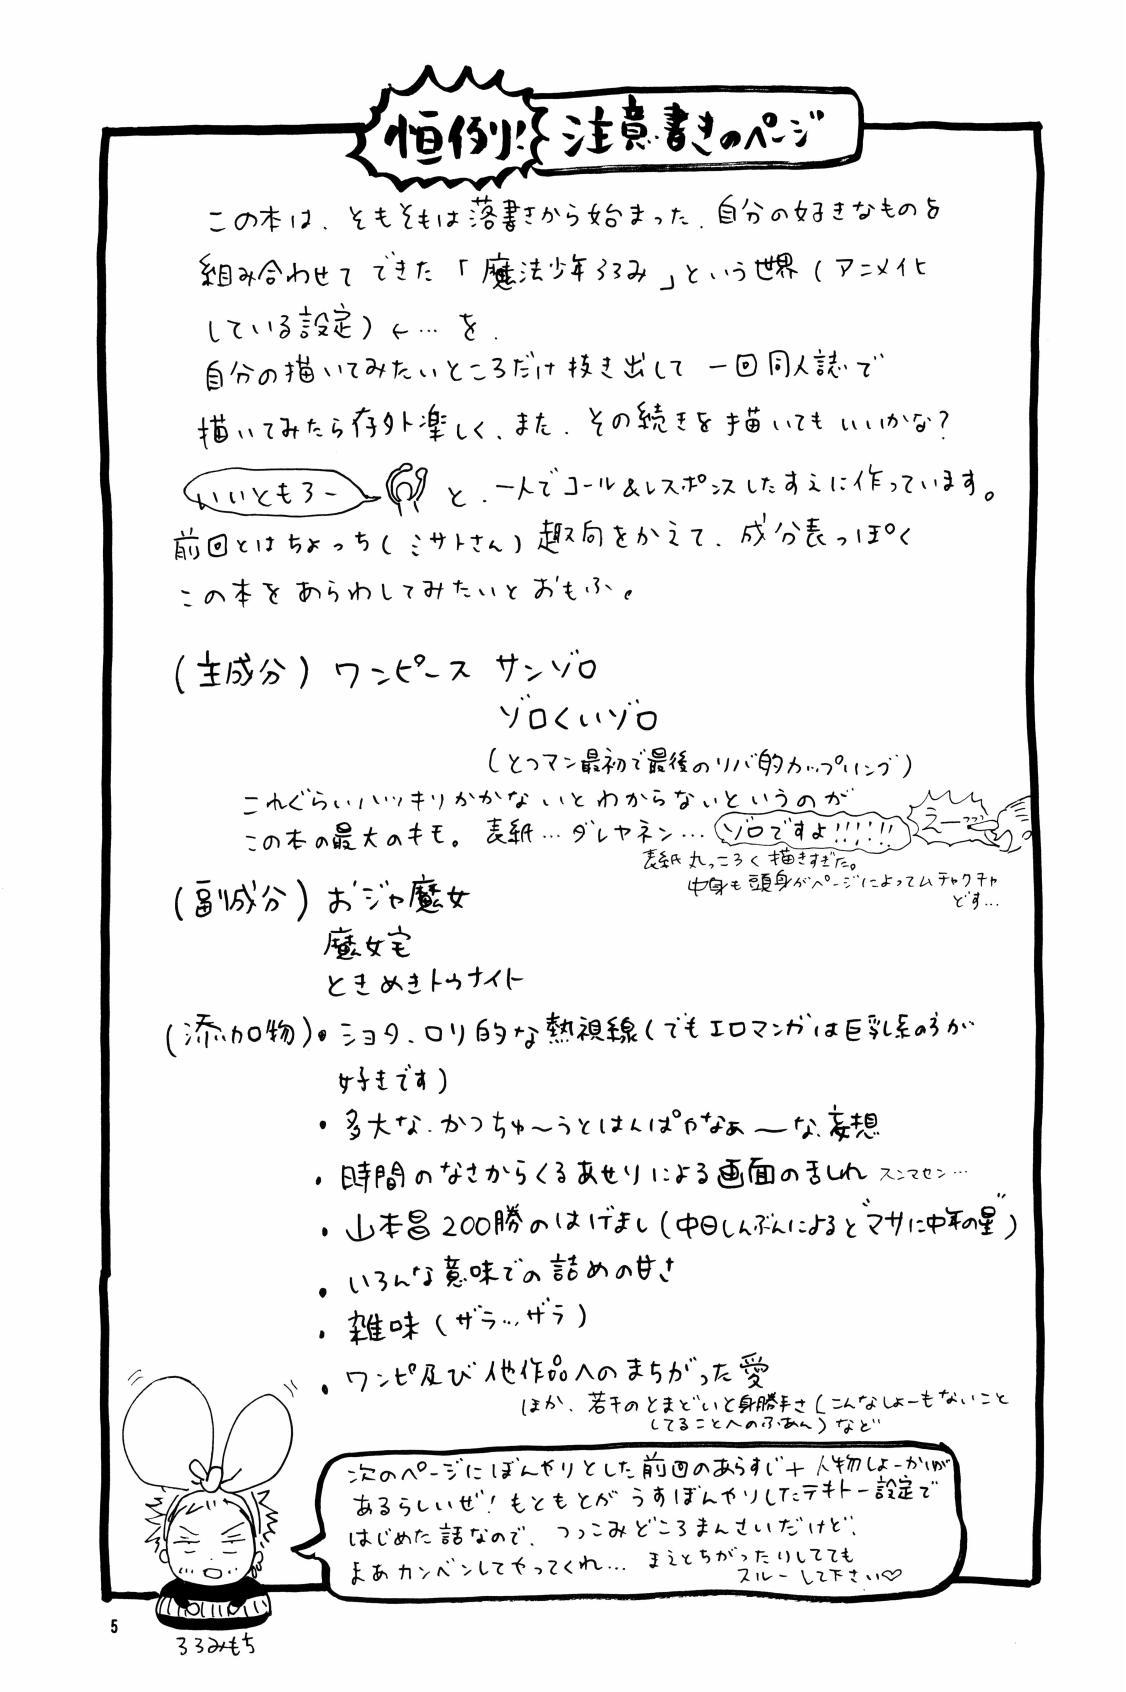 恒例! 注意書きのページ
この本は、そもそもは落書きから始まった、自分の好きなものを
組み合わせてできた「魔法少年ろろみ」という世界(アニメイヒ
している設定)←…を、
自分の描いてみたいところだけ抜き出して一回同人誌で
描いてみたら存外楽しく、また、その続きを描いてもいいかな?
いいともろー と、一人でコール&レスポンスしたすえに作っています。
前回とはちょっち(ミサトさん)趣向をかえて、成分表っぽく
この本をあらわしてみたいとおもふ。
(主成分) ワンピース サンゾロ
ゾロくいゾロ
(とつマン最初で最後のリバ的カップリング)
これぐらいハッキリかかないとわからないというのが
この本の最大のキモ。 表紙…ダレヤネン… ゾロですよ!!!!!! えーっっっ
表紙丸っころく描きすぎた。
中身も頭身がページによってムチャクチャ
どす…
(副成分) おジャ魔女
魔女宅
ときめきトゥナイト
(添加物)・ショタ、ロリ的な熱視線(でもエロマンガは巨乳系の方が
好きです)
・多大な、かつちゅ〜うとはんぱやなぁ〜な、妄想
・時間のなさからくるあせりによる画面の乱れ スンマセン…
・山本昌200勝のはげまし(中日しんぶんによると"マサに中年の星")
・いろんな意味での詰めの甘さ
・雑味(ザラ…ザラ)
・ワンピ及び他作品へのまちがった愛
ほか、若干のとまどいと身勝手さ(こんなしょーもないこと
してることへのふあん)など
次のページにぼんやりとした前回のあらすじ+人物しょーかいが
あるらしいぜ!もともとがうすぼんやりしたテキトー設定で
はじめた話なので、つっこみどころまんさいだけど、
まあカンベンしてやってくれ… まえとちがったりしてても
スルーして下さい♡
ろろみもち
5